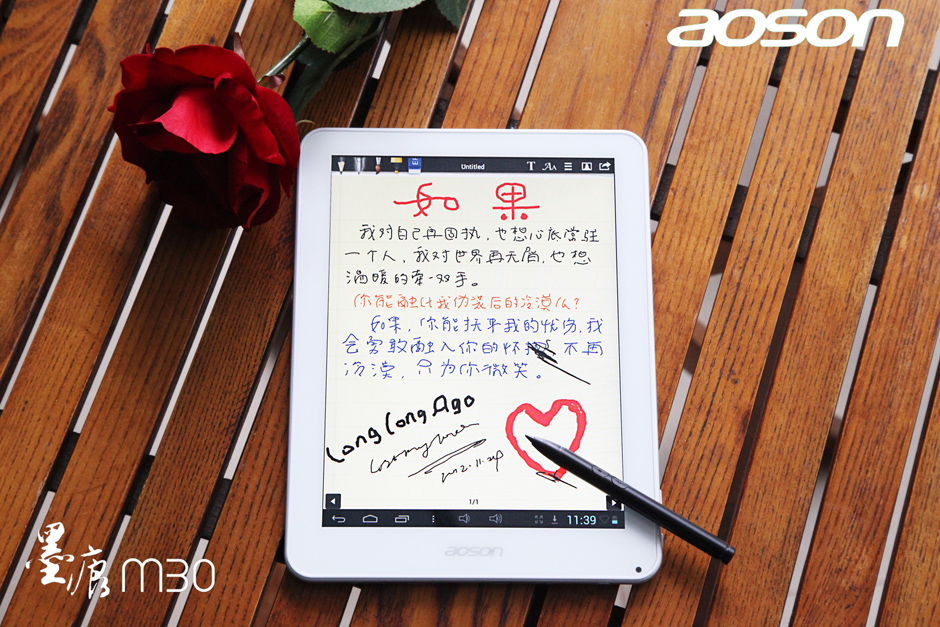 aoson
Untitled
如果
我对自己再固执,也想心底常驻
一个人,我对世界再无眉,也想
温暖的牵一双手。
你能融化我伪装后的冷漠么?
如果,你能扶平我的忧伤,我
会勇敢融入你的怀 不再
冷漠,只为你微笑。
Long Long Ago
1/1
11:39
aoson
墨痕 M30